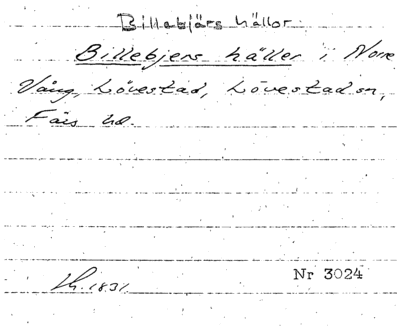 Billebjärs hällor
Billebjers häller i Norre
Vång, Lövestad, Lövestad sn,
Färs hd.
Lh. 1831.
Nr 3024